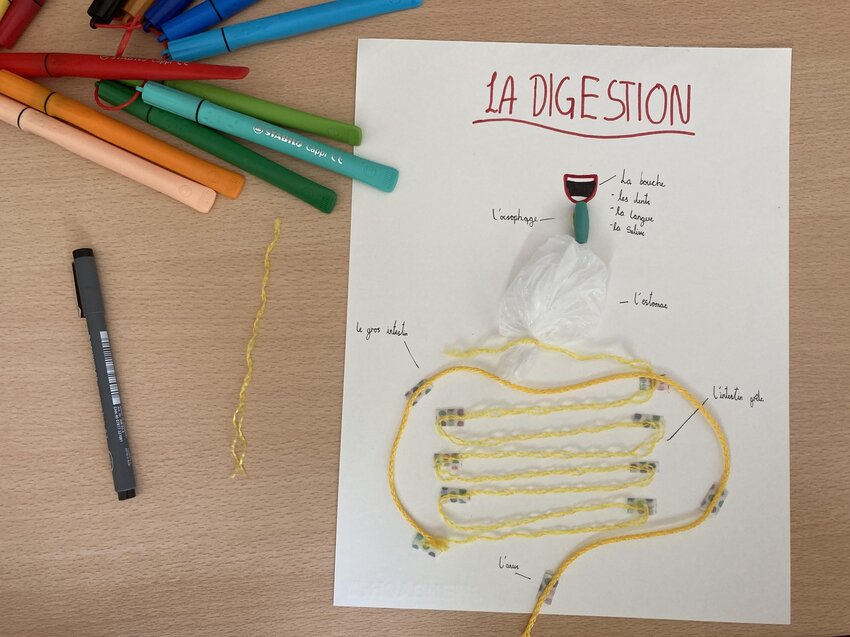 LA DIGESTION
La bouche
- les dents
- la langue
- la salive
L'œsophage
L'estomac
le gros intestin
L'intestin grêle
L'anus
STABILO Cappi CE